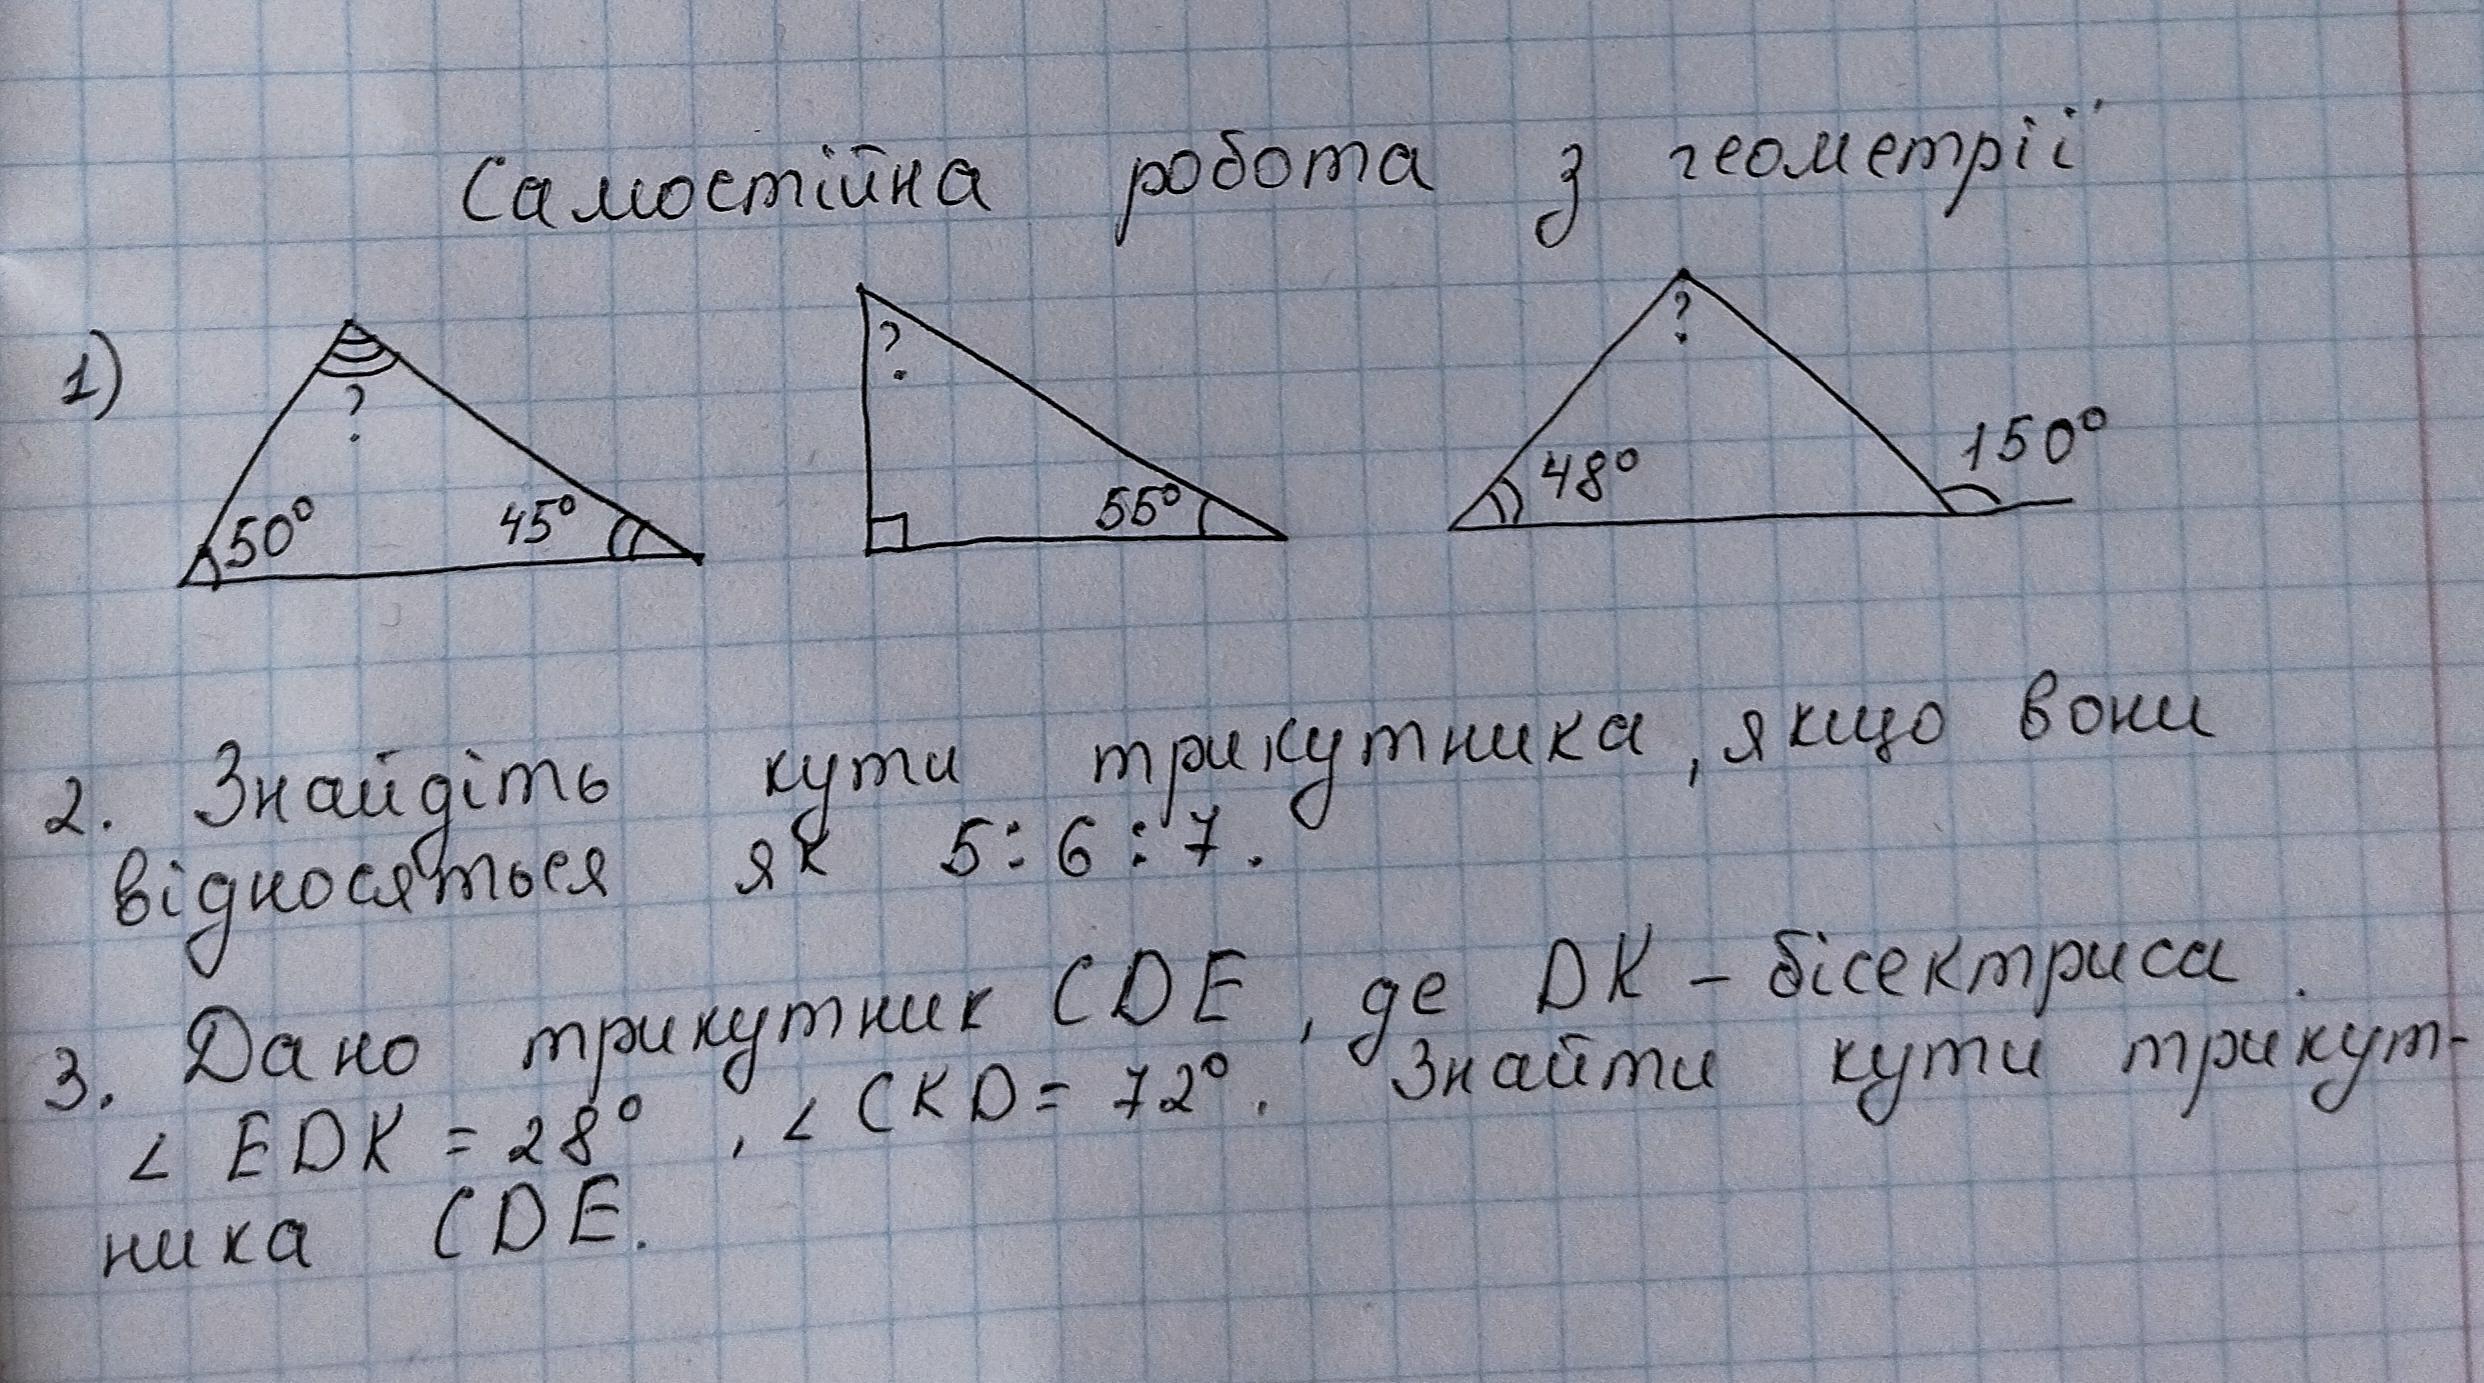 Самостійна робота з геометрії
1)
?
50°
45°
?
55°
?
48°
150°
2. Знайдіть кути трикутника, якщо вони
відносяться як 5:6:7.
3. Дано трикутник CDE, де DK – бісектриса.
∠ EDK = 28°, ∠ CKD = 72°. Знайти кути трикут-
ника CDE.